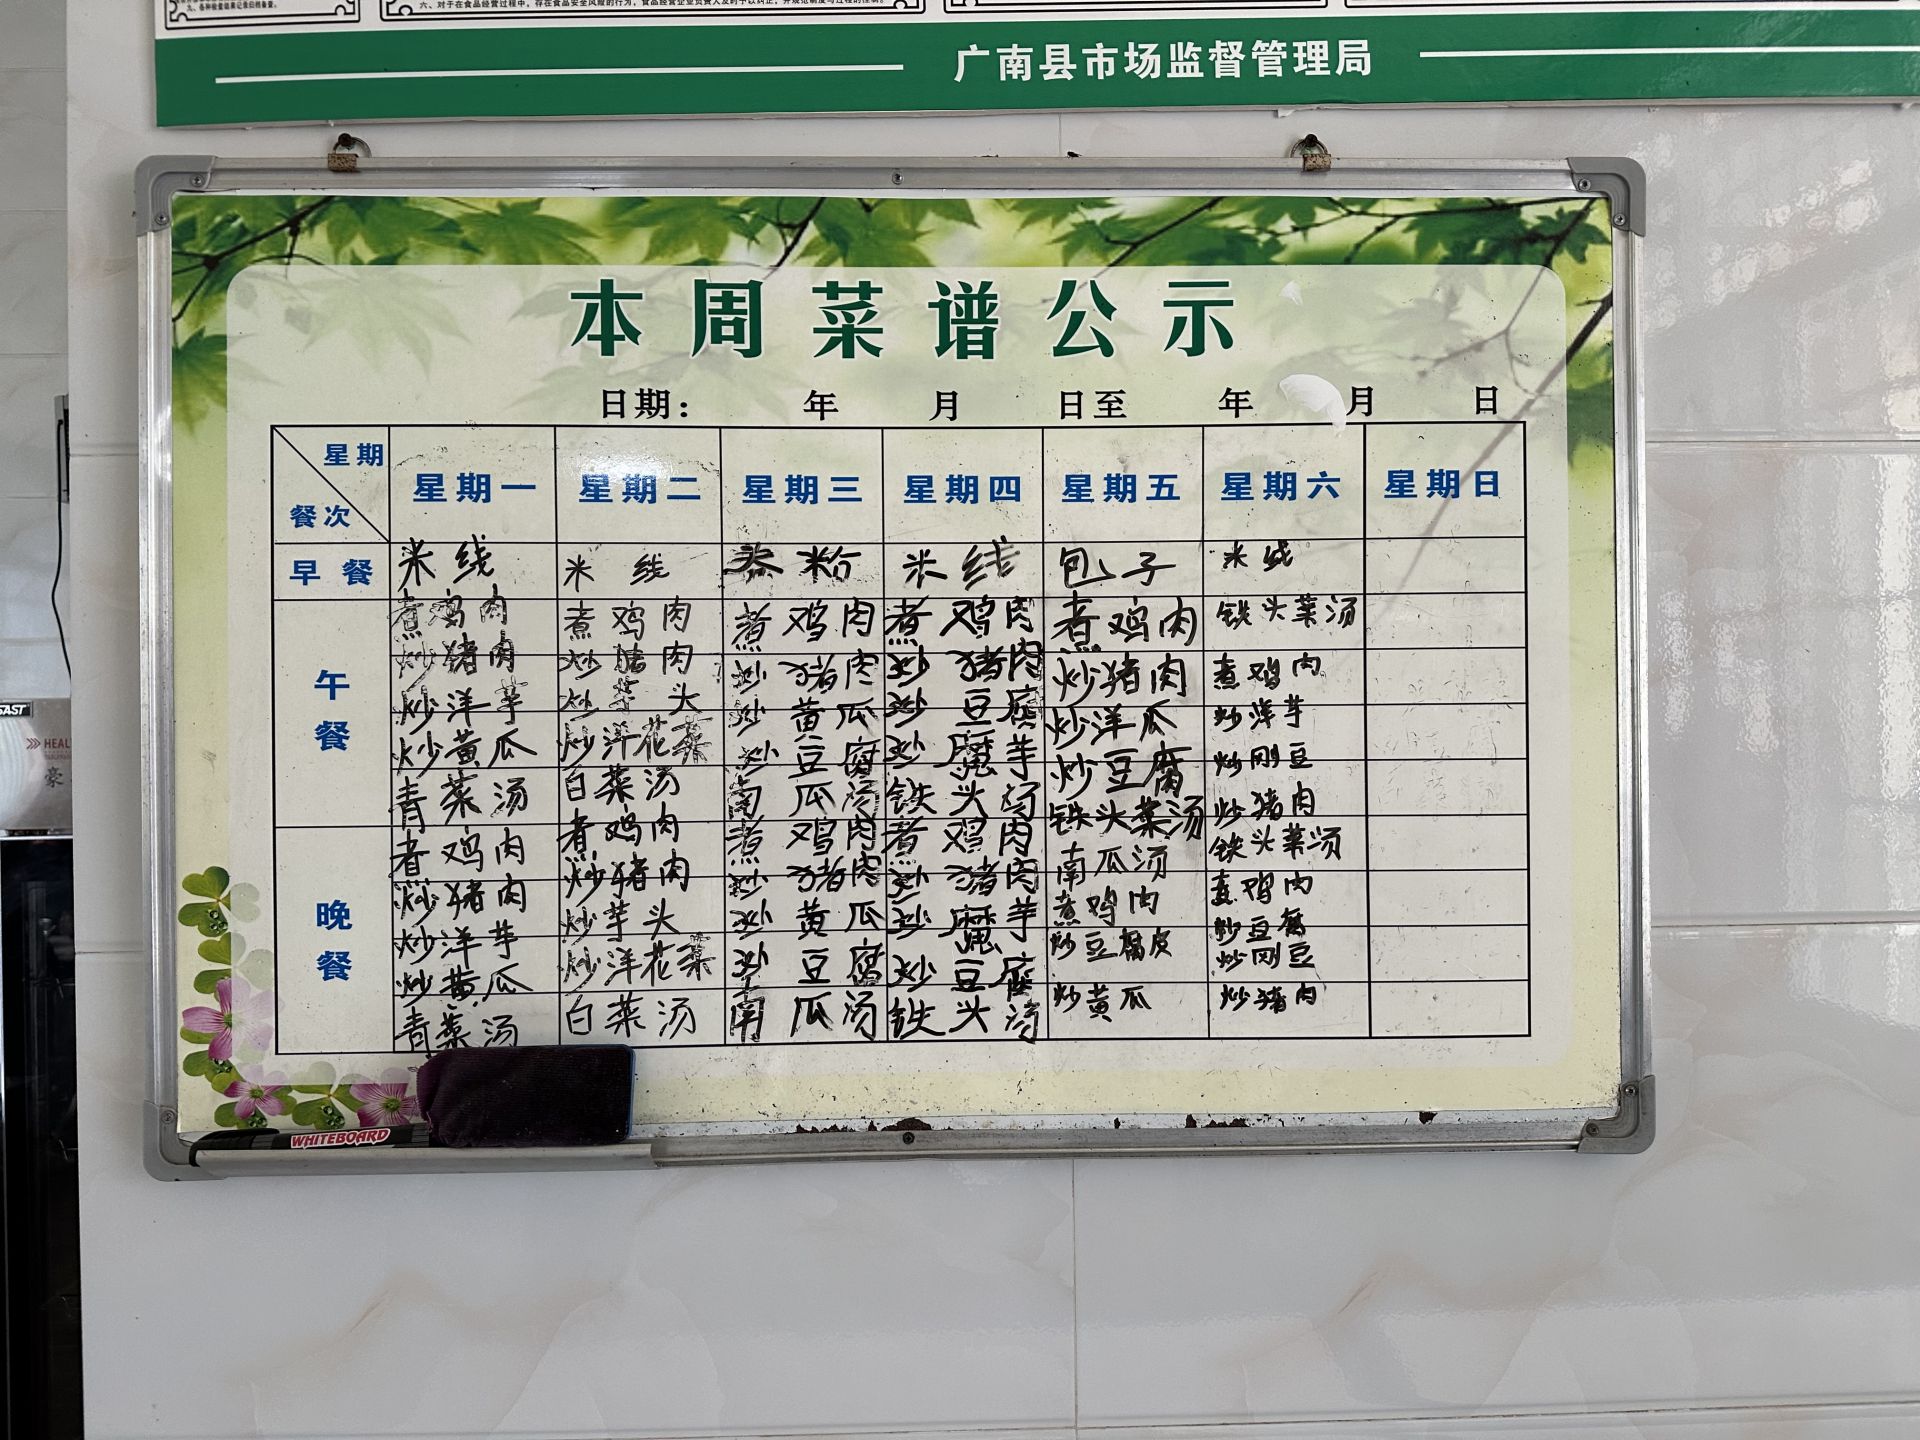 九、各种检查结果记录归档备查。
六、对于在食品经营过程中，存在食品安全风险的行为，食品经营企业负责人及时予以纠正，并规范
广南县市场监督管理局
本周菜谱公示
日期： 年 月 日至 年 月 日
星期 餐次 星期一 星期二 星期三 星期四 星期五 星期六 星期日
早餐 米线 米线 卷粉 米线 包子 米线
午餐
煮鸡肉 煮鸡肉 煮鸡肉 煮鸡肉 煮鸡肉 铁头菜汤
炒猪肉 炒猪肉 炒猪肉 炒猪肉 炒猪肉 煮鸡肉
炒洋芋 炒芋头 炒黄瓜 炒豆腐 炒洋瓜 炒洋芋
炒黄瓜 炒洋花菜 炒豆腐 炒魔芋 炒豆腐 炒刚豆
青菜汤 白菜汤 南瓜汤 铁头汤 铁头菜汤 炒猪肉
晚餐
者鸡肉 煮鸡肉 煮鸡肉 煮鸡肉 南瓜汤 铁头菜汤
炒猪肉 炒猪肉 炒猪肉 炒猪肉 煮鸡肉 煮鸡肉
炒洋芋 炒芋头 炒黄瓜 炒魔芋 炒豆腐皮 炒豆腐
炒黄瓜 炒洋花菜 炒豆腐 炒豆腐 炒黄瓜 炒刚豆
青菜汤 白菜汤 南瓜汤 铁头汤 炒猪肉
WHITEBOARD
HEAL
豪